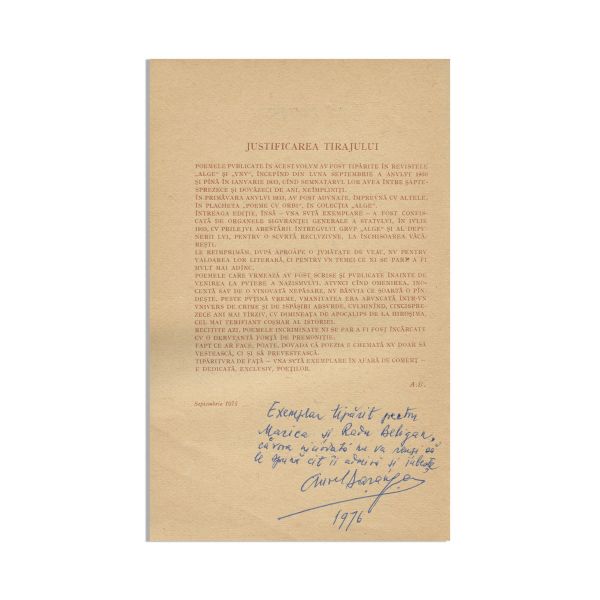 JUSTIFICAREA TIRAJULUI
POEMELE PVBLICATE ÎN ACEST VOLVM AV FOST TIPĂRITE ÎN REVISTELE
„ALGE” ȘI „VNV”, ÎNCEPÎND DIN LVNA SEPTEMBRIE A ANVLVI 1930
ȘI PÎNĂ ÎN IANVARIE 1933, CÎND SEMNATARVL LOR AVEA ÎNTRE ȘAPTE-
SPREZECE ȘI DOVĂZECI DE ANI, NEÎMPLINIȚI.
ÎN PRIMĂVARA ANVLVI 1933, AV FOST ADVNATE, ÎMPREVNĂ CV ALTELE,
ÎN PLACHETA „POEME CV ORBI”, ÎN COLECȚIA „ALGE”.
ÎNTREAGA EDIȚIE, ÎNSĂ – VNA SVTĂ EXEMPLARE – A FOST CONFIS-
CATĂ DE ORGANELE SIGVRANȚEI GENERALE A STATVLVI, ÎN IVLIE
1933, CV PRILEJVL ARESTĂRII ÎNTREGVLVI GRVP „ALGE” ȘI AL DEPV-
NERII LVI, PENTRV O SCVRTĂ RECLVZIVNE, LA ÎNCHISOAREA VĂCĂ-
REȘTI.
LE REIMPRIMĂM, DVPĂ APROAPE O JVMĂTATE DE VEAC, NV PENTRV
VALOAREA LOR LITERARĂ, CI PENTRV VN TEMEI CE NI SE PARE A FI
MVLT MAI ADÎNC.
POEMELE CARE VRMEAZĂ AV FOST SCRISE ȘI PVBLICATE ÎNAINTE DE
VENIREA LA PVTERE A NAZISMVLVI, ATVNCI CÎND OMENIREA, INO-
CENTĂ SAV DE O VINOVATĂ NEPĂSARE, NV BĂNVIA CE SOARTĂ O PÎN-
DEȘTE. PESTE PVȚINĂ VREME, VMANITATEA ERA ARVNCATĂ ÎNTR-VN
VNIVERS DE CRIME ȘI DE ISPĂȘIRI ABSVRDE, CVLMINÎND, CINCISPRE-
ZECE ANI MAI TÎRZIV, CV DIMINEAȚA DE APOCALIPS DE LA HIROȘIMA,
CEL MAI TERIFIANT COȘMAR AL ISTORIEI.
RECITITE AZI, POEMELE INCRIMINATE NI SE PAR A FI FOST ÎNCĂRCATE
CV O DERVTANTĂ FORȚĂ DE PREMONIȚIE.
FAPT CE AR FACE, POATE, DOVADA CĂ POEZIA E CHEMATĂ NV DOAR SĂ
VESTEASCĂ, CI ȘI SĂ PREVESTEASCĂ.
TIPĂRITVRA DE FAȚĂ – VNA SVTĂ EXEMPLARE ÎN AFARĂ DE COMERȚ –
E DEDICATĂ, EXCLVSIV, POEȚILOR.
A.B.
Septembrie 1975
Exemplar tipărit pentru
Marica și Radu Beligan,
cărora niciodată nu va reuși să
le spună cît îi admiră și iubește
Aurel Baranga
1976